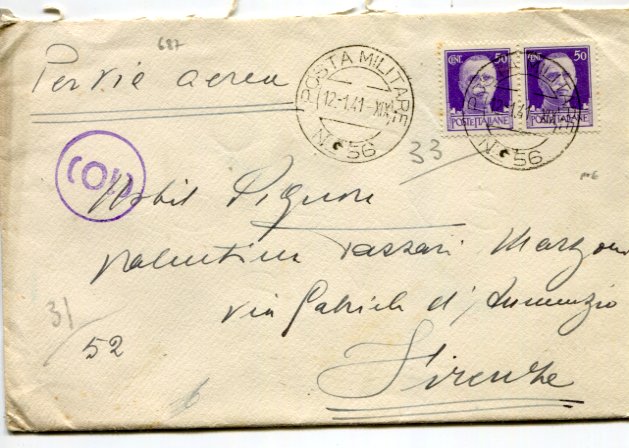 687
Per via aerea
POSTA MILITARE
12-1.41-XIX
N. 56
CENT. 50
POSTE ITALIANE
50
POSTE ITALIANE
N. 56
33
Nobil Signora
Valentina Tassari
via Gabriele d'Annunzio
31
52
Firenze